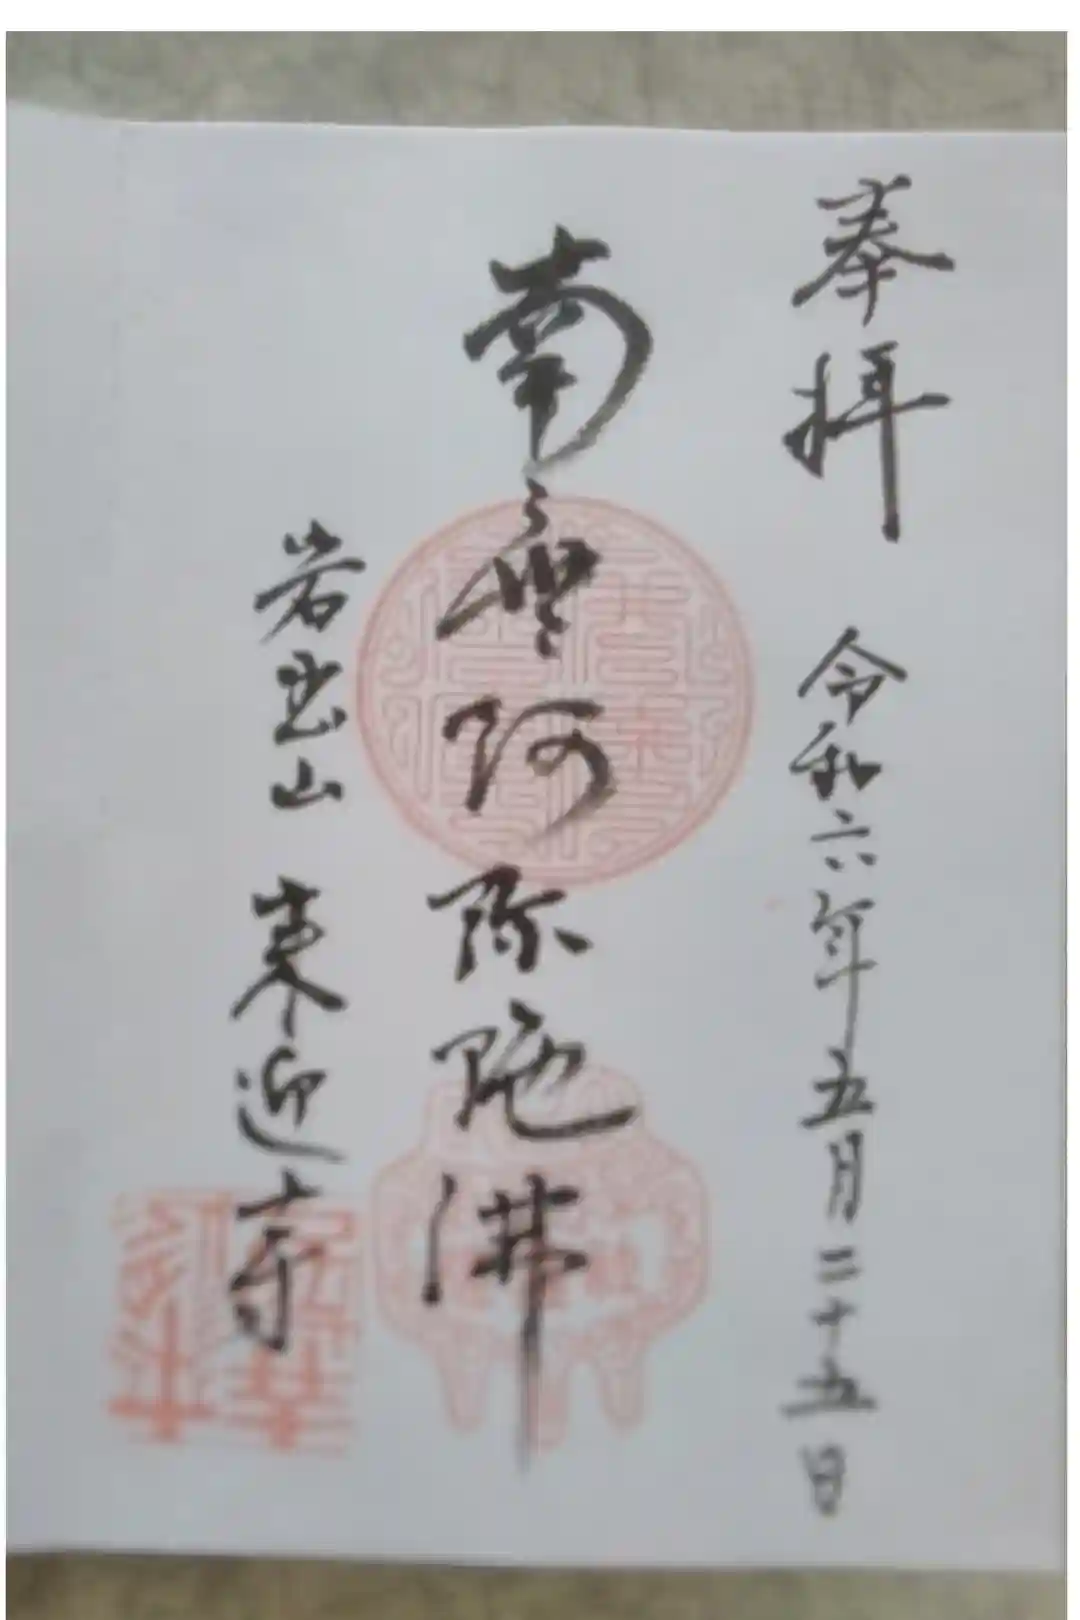 奉拝 令和六年五月二十五日
南無阿弥陀佛
岩玉山 来迎寺